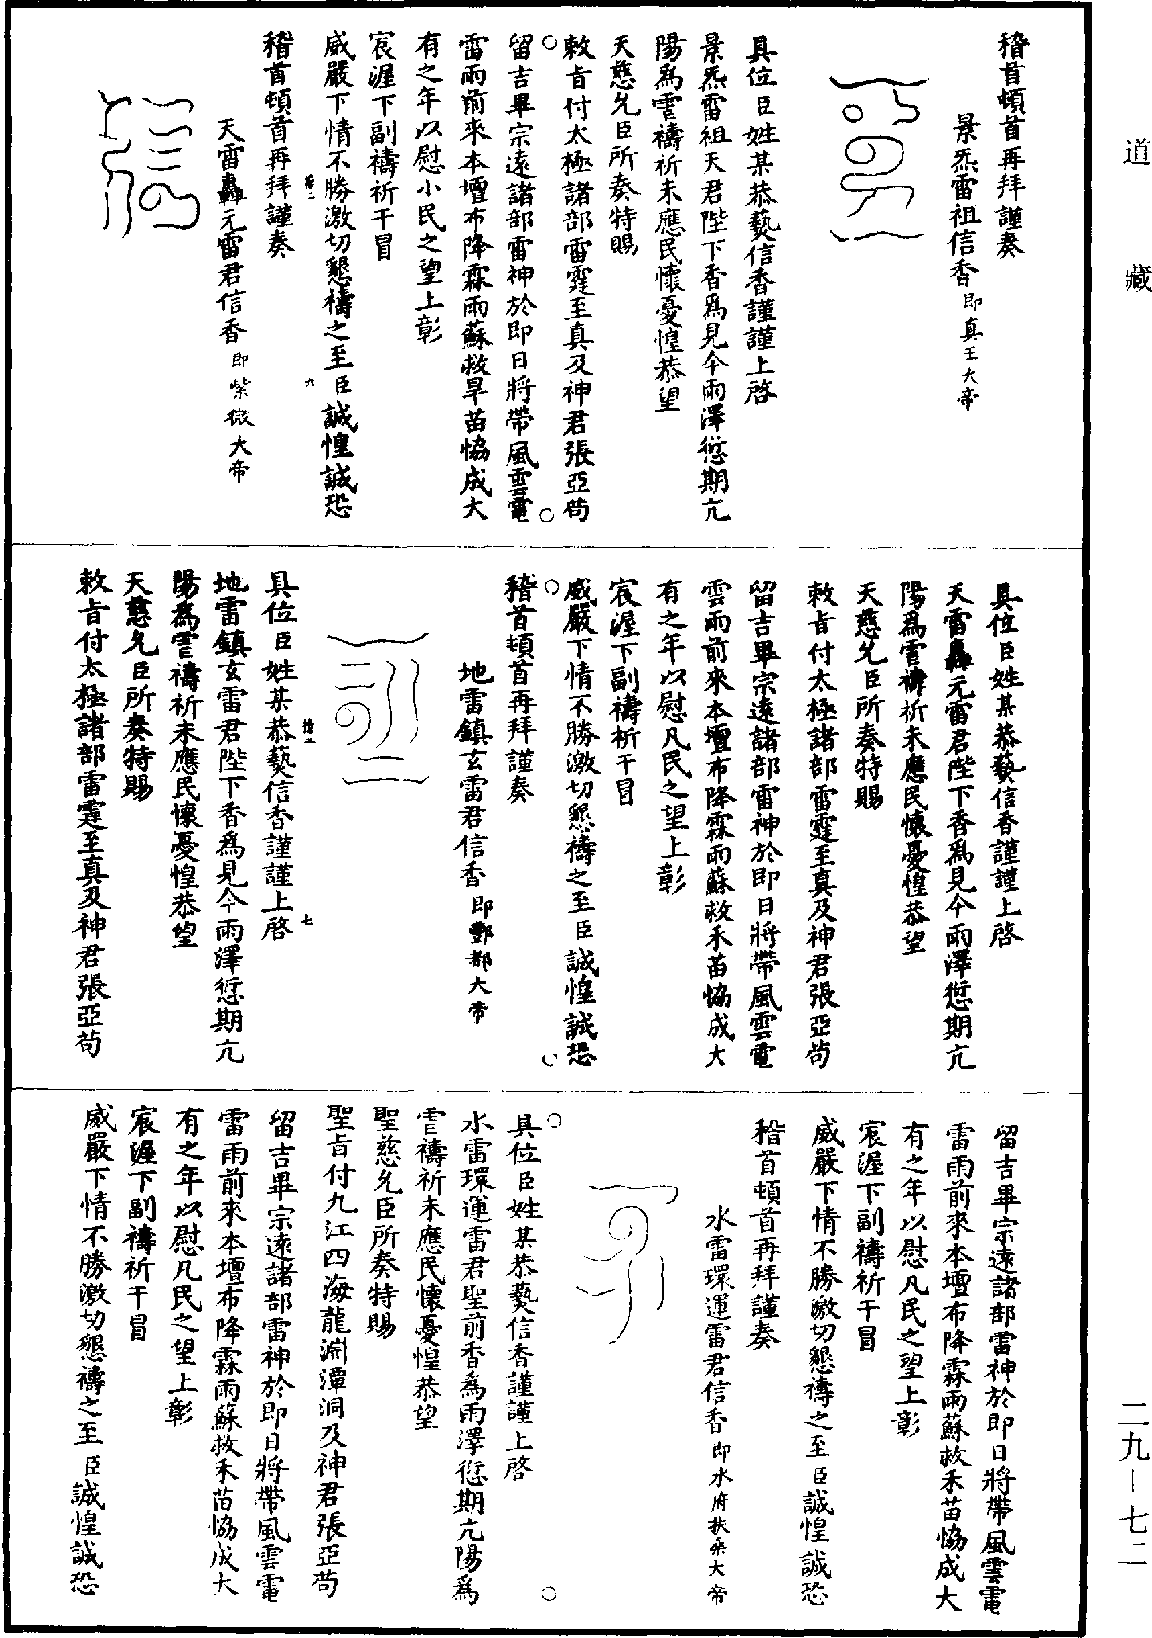 道藏
二九—七二
稽首頓首再拜謹奏
景炁雷祖信香即真王大帝
具位臣姓某恭爇信香謹謹上啓
景炁雷祖天君陛下香爲見今雨澤愆期亢
陽爲雩禱祈未應民懷憂惶恭望
天慈允臣所奏特賜
敕旨付太極諸部雷霆至真及神君張亞苟
留吉畢宗遠諸部雷神於即日將帶風雲電
雷雨前來本壇布降霖雨蘇救旱苗恊成大
有之年以慰小民之望上彰
宸渥下副禱祈干冒
威嚴下情不勝激切懇禱之至臣誠惶誠恐
六
稽首頓首再拜謹奏
天雷轟元雷君信香即紫微大帝
具位臣姓某恭爇信香謹謹上啓
天雷轟元雷君陛下香爲見今雨澤愆期亢
陽爲雩禱祈未應民懷憂惶恭望
天慈允臣所奏特賜
敕旨付太極諸部雷霆至真及神君張亞苟
留吉畢宗遠諸部雷神於即日將帶風雲電
雲雨前來本壇布降霖雨蘇救禾苗恊成大
有之年以慰凡民之望上彰
宸渥下副禱祈干冒
威嚴下情不勝激切懇禱之至臣誠惶誠恐
稽首頓首再拜謹奏
地雷鎮玄雷君信香即酆都大帝
七
具位臣姓某恭爇信香謹謹上啓
地雷鎮玄雷君陛下香爲見今雨澤愆期亢
陽爲雩禱祈未應民懷憂惶恭望
天慈允臣所奏特賜
敕旨付太極諸部雷霆至真及神君張亞苟
留吉畢宗遠諸部雷神於即日將帶風雲電
雷雨前來本壇布降霖雨蘇救禾苗恊成大
有之年以慰凡民之望上彰
宸渥下副禱祈干冒
威嚴下情不勝激切懇禱之至臣誠惶誠恐
稽首頓首再拜謹奏
水雷環運雷君信香即水府扶桑大帝
具位臣姓某恭爇信香謹謹上啓
水雷環運雷君聖前香爲雨澤愆期亢陽爲
雩禱祈未應民懷憂惶恭望
聖慈允臣所奏特賜
聖旨付九江四海龍淵潭洞及神君張亞苟
留吉畢宗遠諸部雷神於即日將帶風雲電
雷雨前來本壇布降霖雨蘇救禾苗恊成大
有之年以慰凡民之望上彰
宸渥下副禱祈干冒
威嚴下情不勝激切懇禱之至臣誠惶誠恐